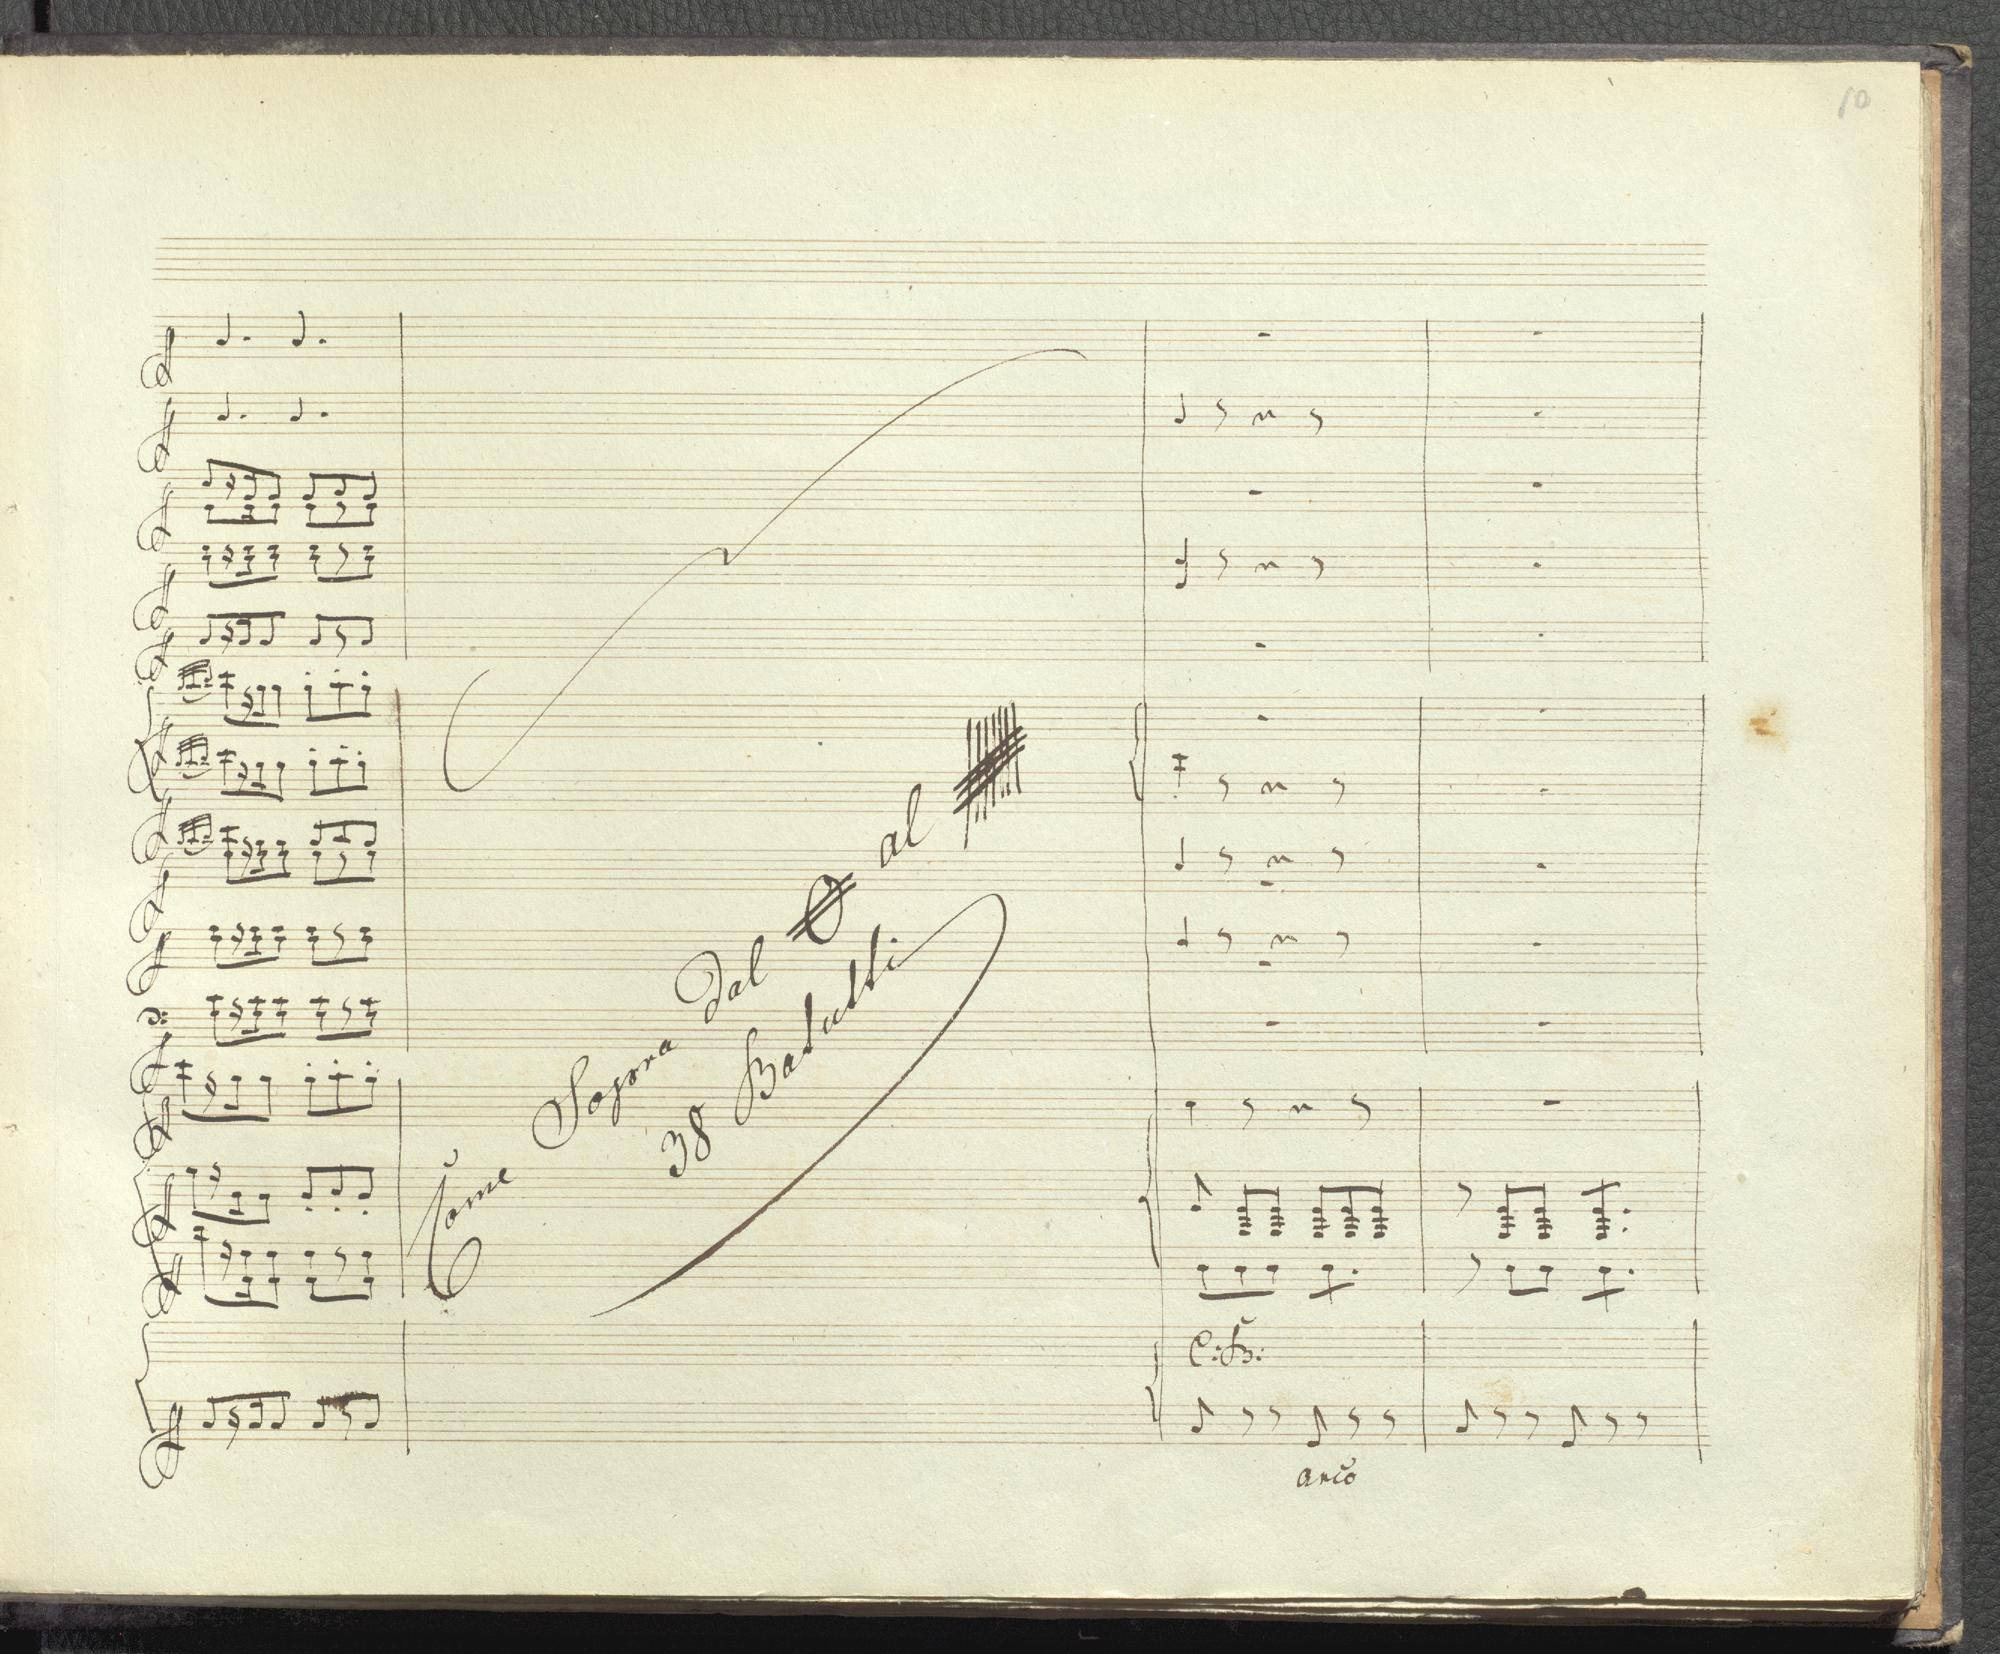 10
Come Sopra dal al
38 Battutti
C:B:
arco